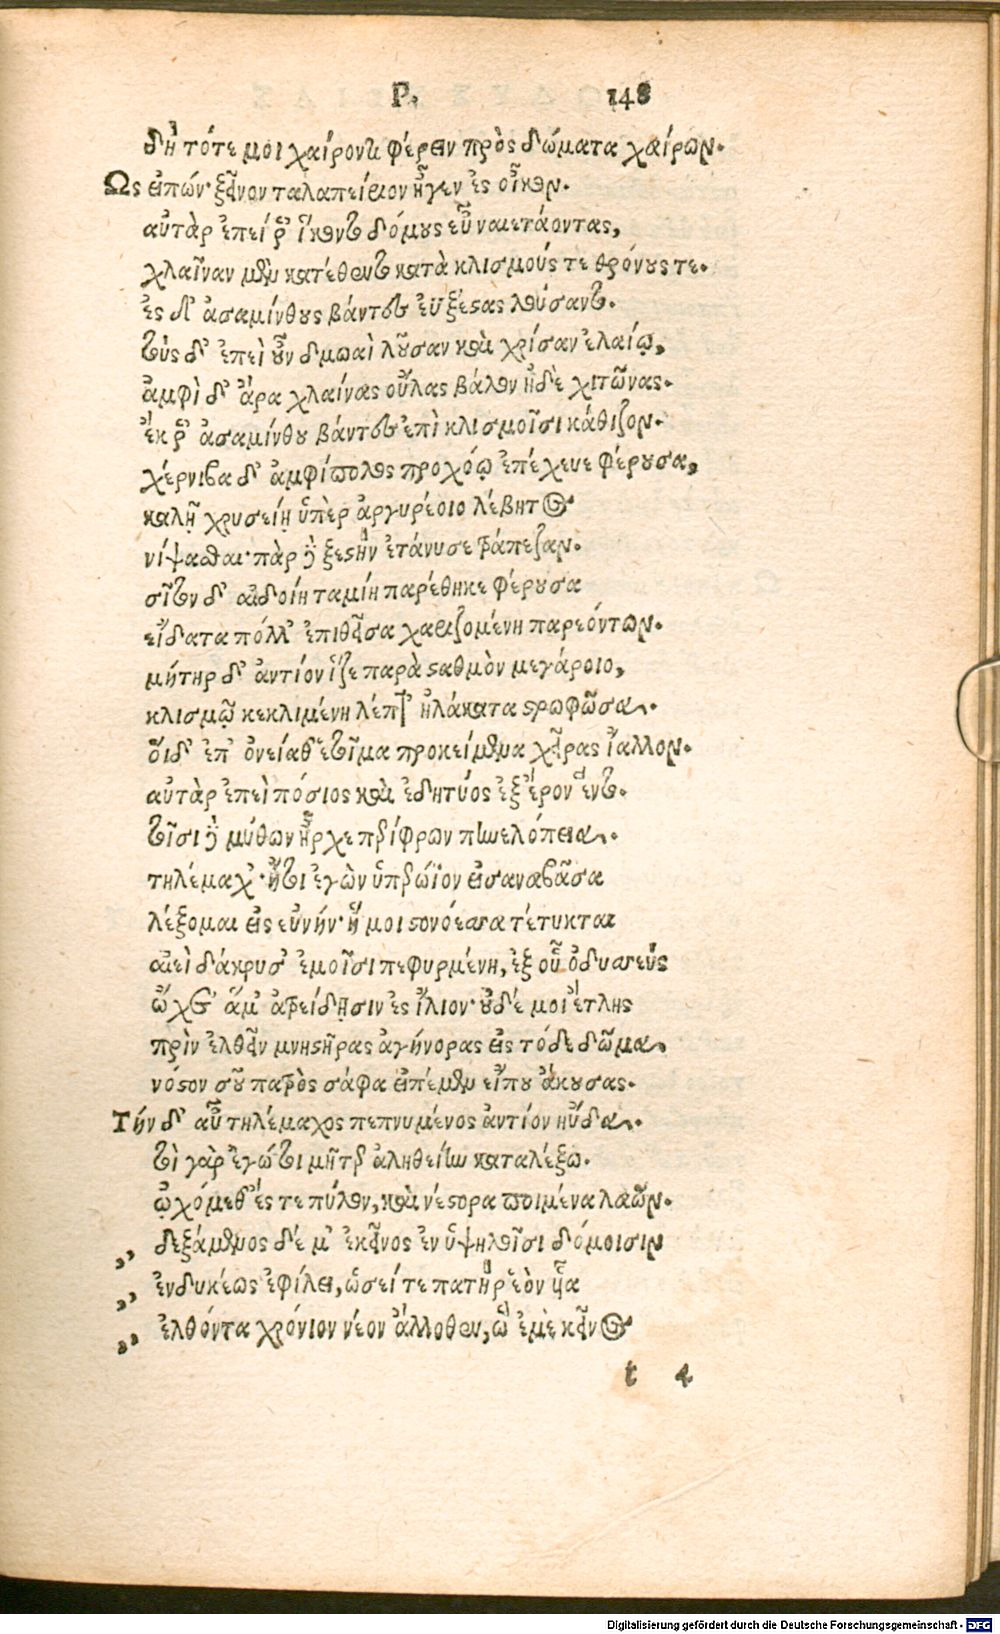 Ρ. 148
δὴ τότε μοι χαίροντι φέρειν πρὸς δώματα χαίρων.
Ως εἰπών· ξεῖνον ταλαπείριον ἦγεν ἐς οἶκον.
αὐτὰρ ἐπεί ῥ' ἵκοντο δόμους εὖ ναιετάοντας,
χλαῖναν μὲν κατέθεντο κατὰ κλισμούς τε θρόνους τε.
ἐς δ' ἀσαμίνθους βάντες ἐϋξέστας λούσαντο.
τοὺς δ' ἐπεὶ οὖν δμωαὶ λοῦσαν καὶ χρίσαν ἐλαίῳ,
ἀμφὶ δ' ἄρα χλαίνας οὔλας βάλον ἠδὲ χιτῶνας.
ἔκ ῥ' ἀσαμίνθου βάντες ἐπὶ κλισμοῖσι κάθιζον.
χέρνιβα δ' ἀμφίπολος προχόῳ ἐπέχευε φέρουσα,
καλῇ χρυσείῃ ὑπὲρ ἀργυρέοιο λέβητος
νίψασθαι· πὰρ δὲ ξεστὴν ἐτάνυσε τράπεζαν.
σῖτον δ' αἰδοίη ταμίη παρέθηκε φέρουσα
εἴδατα πόλλ' ἐπιθεῖσα χαριζομένη παρεόντων.
μήτηρ δ' ἀντίον ἷζε παρὰ σταθμὸν μεγάροιο,
κλισμῷ κεκλιμένη λέπτ' ἠλάκατα στρωφῶσα.
οἵδ' ἐπ' ὀνείαθ' ἑτοῖμα προκείμενα χεῖρας ἴαλλον.
αὐτὰρ ἐπεὶ πόσιος καὶ ἐδητύος ἐξ ἔρον ἕντο.
τοῖσι δὲ μύθων ἦρχε περίφρων πηνελόπεια.
τηλέμαχ'· ἤτοι ἐγὼν ὑπερώϊον εἰσαναβᾶσα
λέξομαι εἰς εὐνήν· ἥ μοι στονόεσσα τέτυκται
αἰεὶ δάκρυσ' ἐμοῖσι πεφυρμένη, ἐξ οὗ ὀδυσσεὺς
ᾤχεθ' ἅμ' ἀτρείδῃσιν ἐς ἴλιον· οὐδέ μοι ἔτλης
πρὶν ἐλθεῖν μνηστῆρας ἀγήνορας εἰς τόδε δῶμα.
νόστον σοῦ πατρὸς σάφα εἰπέμεν εἴπου ἄκουσας.
Τήν δ' αὖ τηλέμαχος πεπνυμένος ἀντίον ηὔδα.
τοὶ γὰρ ἐγώ τοι μῆτερ ἀληθείην καταλέξω.
ᾠχόμεθ' ἔς τε πύλον, καὶ νέστορα ποιμένα λαῶν.
,, δεξάμενος δέ μ' ἐκεῖνος ἐν ὑψηλοῖσι δόμοισιν
,, ἐνδυκέως ἐφίλει, ὡσεί τε πατὴρ ἑὸν υἷα
,, ἐλθόντα χρόνιον νέον ἄλλοθεν, ὣς ἐμὲ κεῖνος
t 4
Digitalisierung gefördert durch die Deutsche Forschungsgemeinschaft - DFG